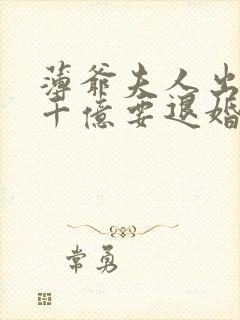 薄爷夫人出
十億要退婚
常勇